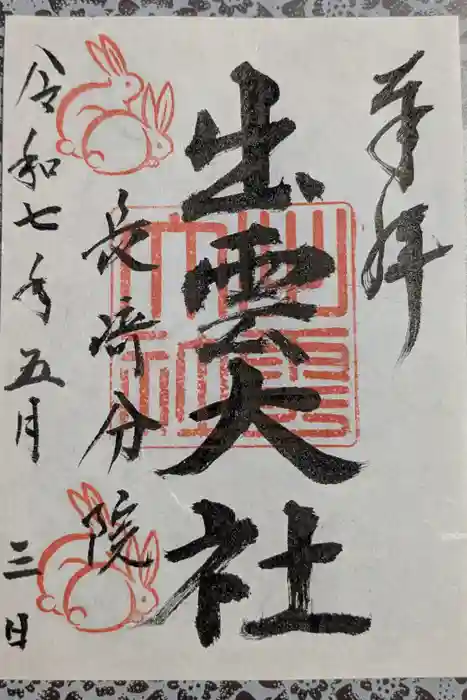 奉拝
出雲大社
長崎分院
令和七年五月三日
出雲大社